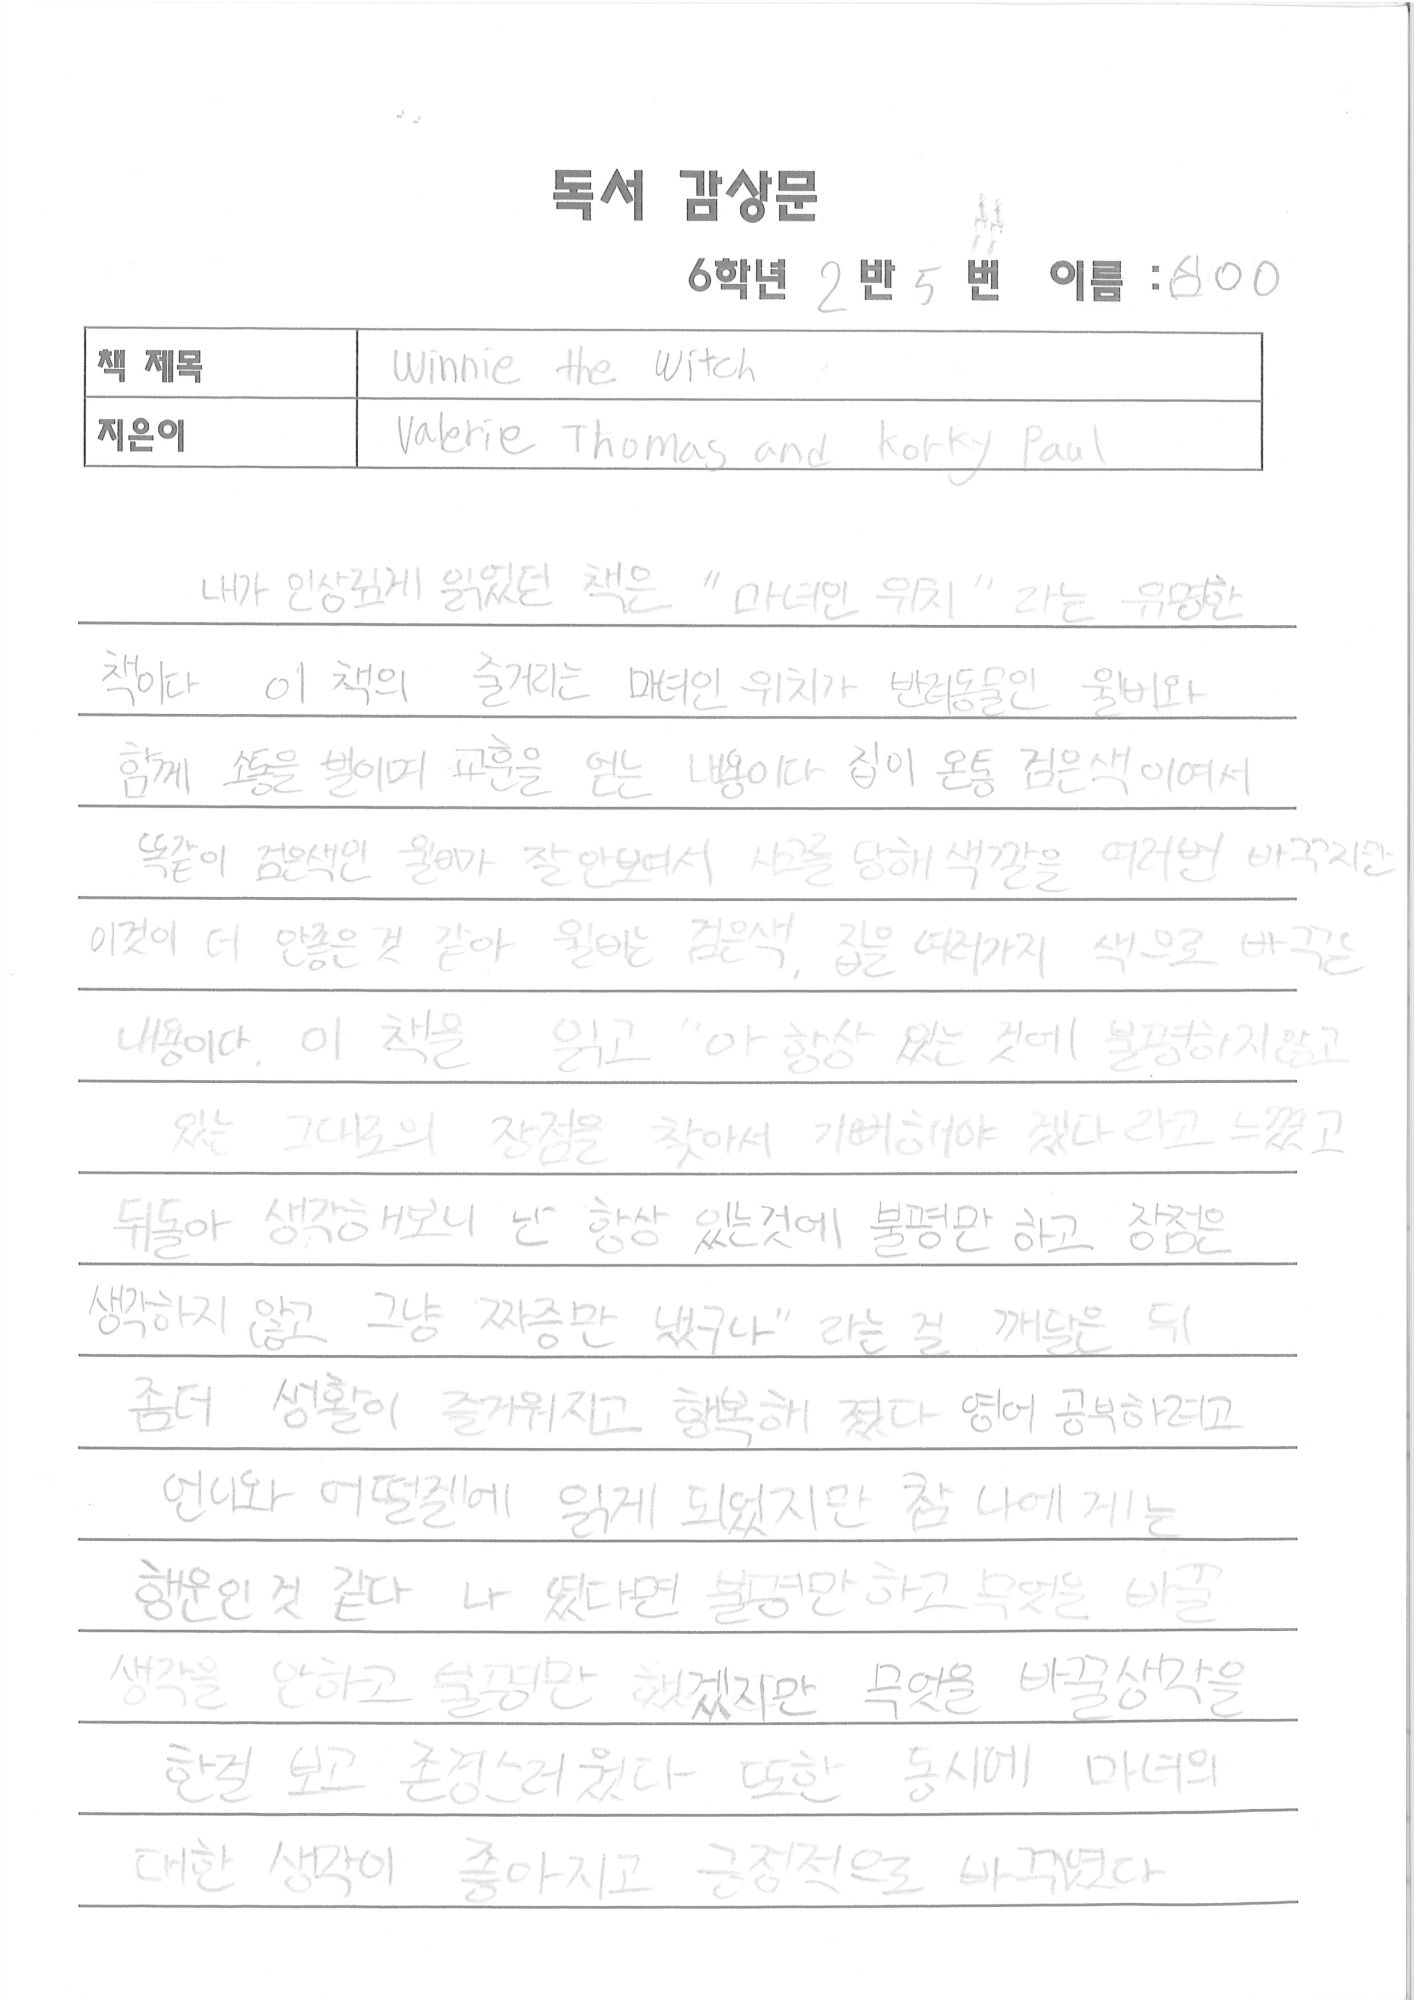 독서 감상문
6학년 2 반 5 번 이름 : 심OO
책 제목 Winnie the Witch
지은이 Valerie Thomas and Korky Paul
내가 인상깊게 읽었던 책은 "마녀인 위치" 라는 유명한
책이다 이 책의 줄거리는 마녀인 위치가 반려동물인 윌버와
함께 소통을 벌이며 교훈을 얻는 내용이다 집이 온통 검은색이여서
똑같이 검은색인 윌버가 잘안보여서 사고를 당해 색깔을 여러번 바꾸지만
이것이 더 안좋은것 같아 윌버는 검은색, 집을 여러가지 색으로 바꾸는
내용이다. 이 책을 읽고 "아 항상 있는 것에 불평하지않고
있는 그대로의 장점을 찾아서 기뻐해야 겠다 라고 느꼈고
뒤돌아 생각해보니 난 항상 있는것에 불평만 하고 장점은
생각하지 않고 그냥 짜증만 냈구나" 라는 걸 깨달은 뒤
좀더 생활이 즐거워지고 행복해 졌다 영어 공부하려고
언니와 어떨결에 읽게 되었지만 참 나에게는
행운인 것 같다 나 였다면 불평만하고 무엇을 바꿀
생각을 안하고 불평만 했겠지만 무엇을 바꿀생각을
한걸 보고 존경스러웠다 또한 동시에 마녀의
대한 생각이 좋아지고 긍정적으로 바뀌였다